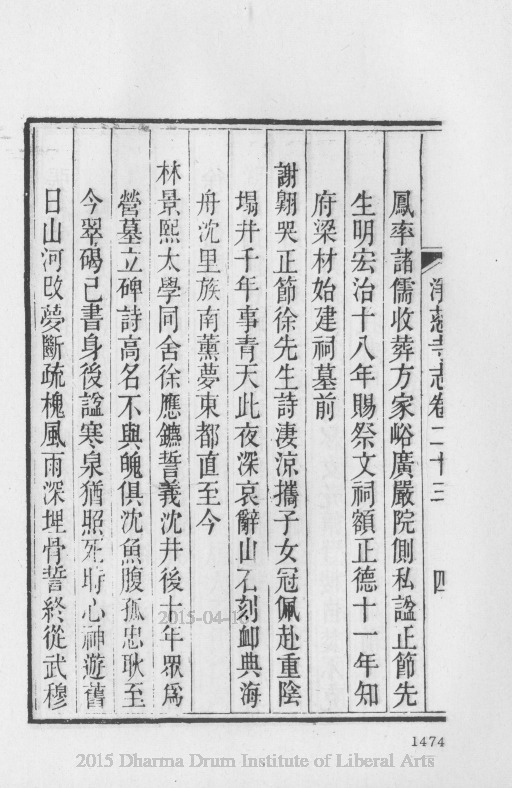 淨慈寺志卷二十三 四
鳳率諸儒收葬方家峪廣嚴院側私諡正節先
生明宏治十八年賜祭文祠額正德十一年知
府梁材始建祠墓前
謝翺哭正節徐先生詩淒涼攜子女冠佩赴重陰
塌井千年事青天此夜深哀辭山石刻卹典海
舟沈里族南薰夢東都直至今
林景熙太學同舍徐應鑣誓義沈井後十年眾爲
營墓立碑詩高名不與魄俱沈魚腹孤忠耿至
今翠碣已書身後諡寒泉猶照死時心神遊舊
日山河改夢斷疏槐風雨深埋骨誓終從武穆
1474
2015-04-1
2015 Dharma Drum Institute of Liberal Arts